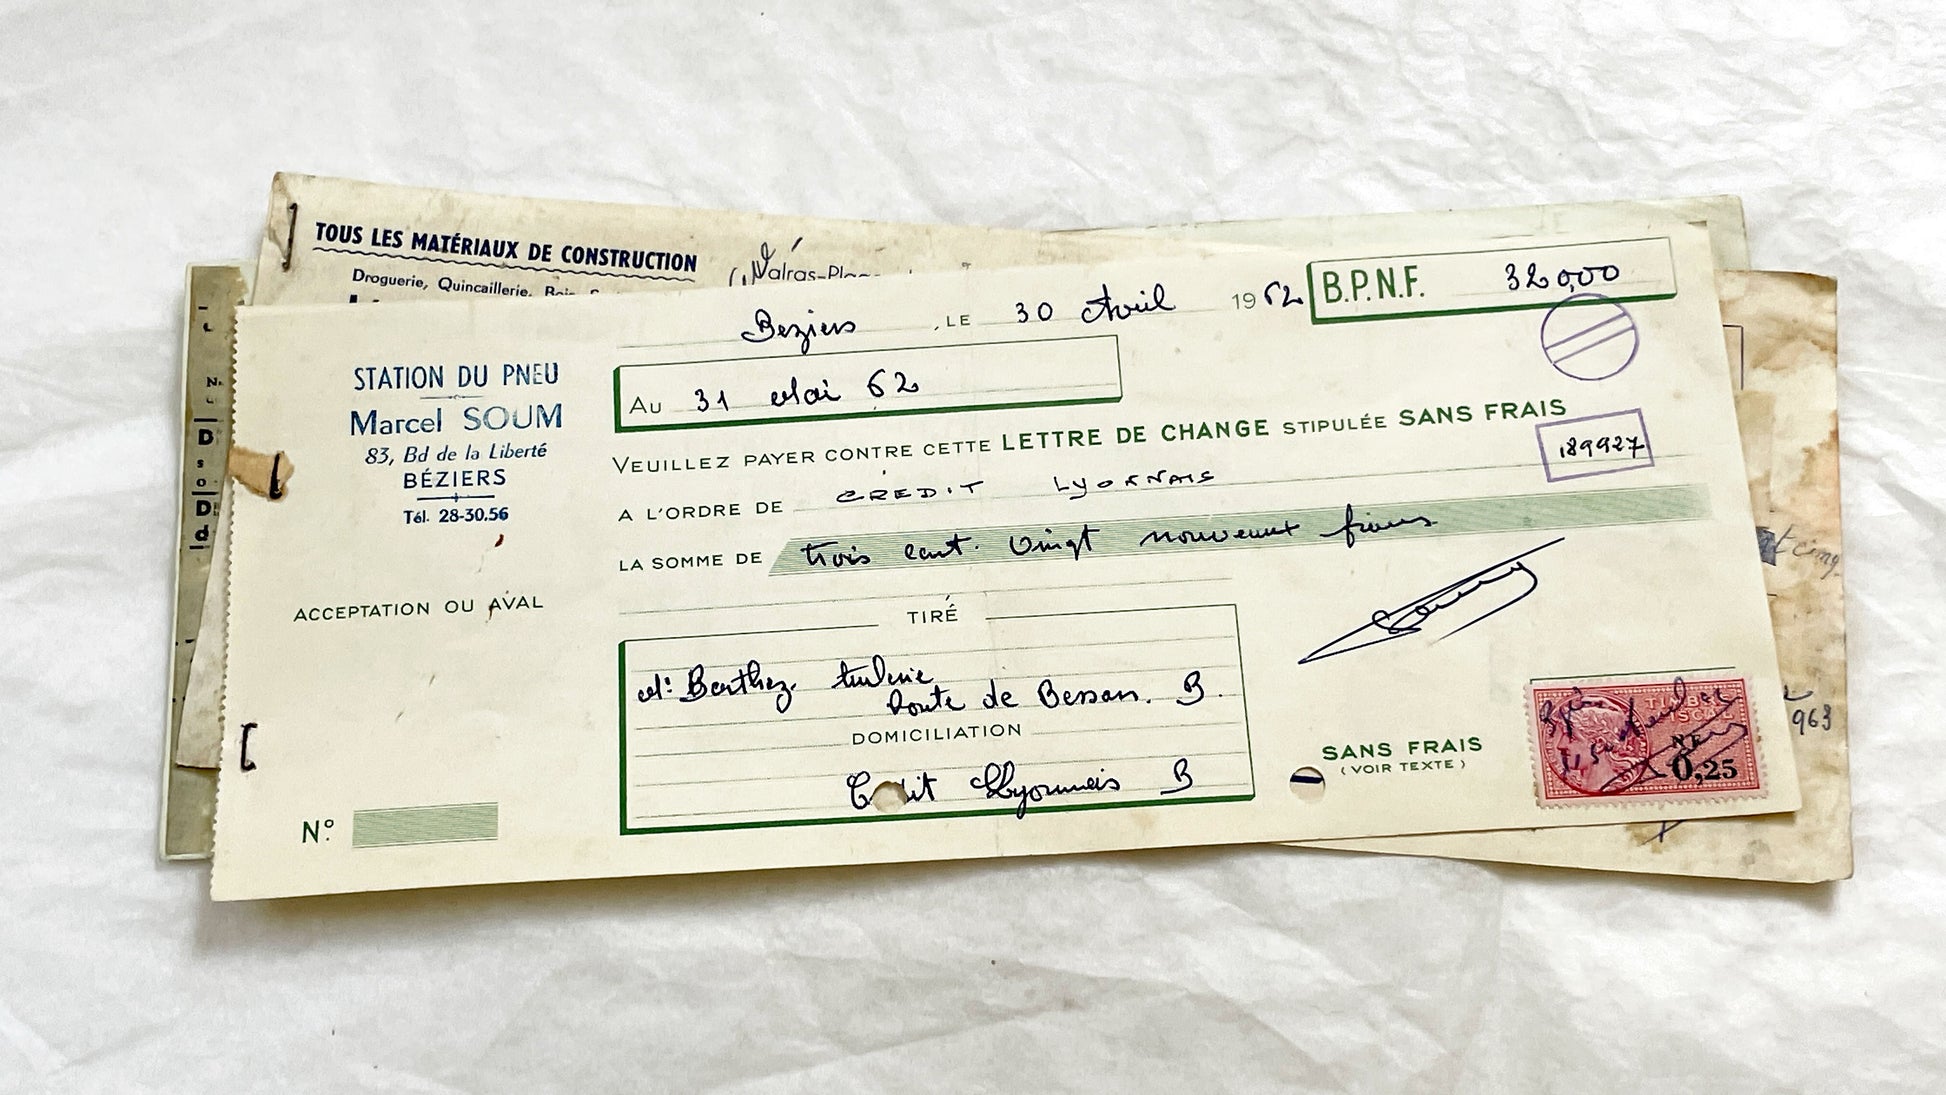 TOUS LES MATÉRIAUX DE CONSTRUCTION
Droguerie, Quincaillerie,
Valras-
Beziers, LE 30 Avril 1962
B.P.N.F. 320,00
STATION DU PNEU
Marcel SOUM
83, Bd de la Liberté
BÉZIERS
Tél. 28-30.56
AU 31 Mai 62
VEUILLEZ PAYER CONTRE CETTE LETTRE DE CHANGE STIPULÉE SANS FRAIS
189927
A L'ORDRE DE CREDIT LYONNAIS
LA SOMME DE trois cent vingt nouveaux francs
ACCEPTATION OU AVAL
TIRÉ
Mr Barthez
Route de Bessan. B.
DOMICILIATION
Crédit Lyonnais B
SANS FRAIS
(VOIR TEXTE)
TIMBRE
FISCAL
NF
0,25
963
No.